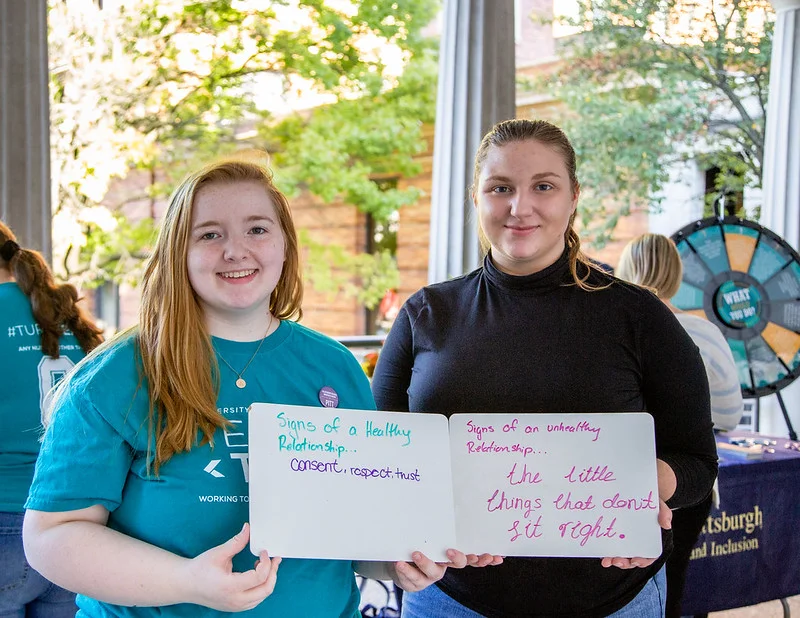 #TUR
ANY NU
ETHER
PITT
VERSITY
WORKING TO
Signs of a Healthy
Relationship...
consent, respect, trust
Signs of an unhealthy
Relationship...
the little
things that don't
sit right.
WHAT
YOU DO?
ttsburgh
and Inclusion